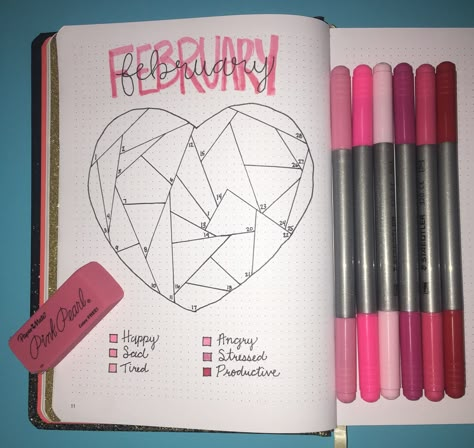 FEBRUARY
february
1
2
3
4
5
6
7
8
9
10
11
12
13
14
15
16
17
18
19
20
21
22
23
24
25
26
27
28
Paper Mate
Pink Pearl
STAEDTLER
Happy
Angry
Sad
Stressed
Tired
Productive
11